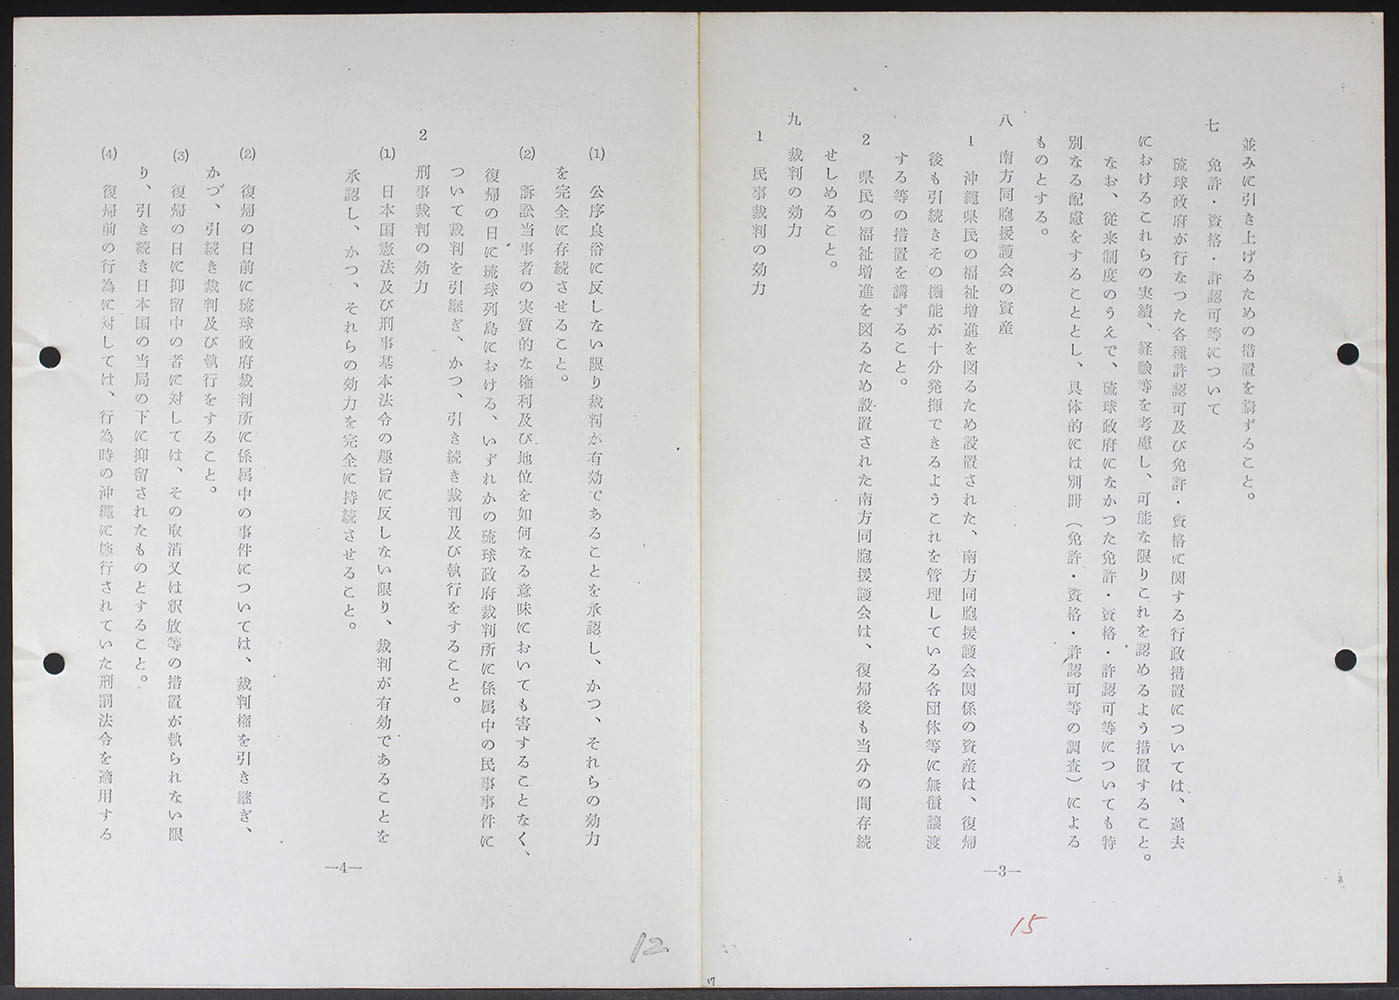 並みに引き上げるための措置を講ずること。
七　免許・資格・許認可等について
琉球政府が行なつた各種許認可及び免許・資格に関する行政措置については、過去
におけるこれらの実績、経験等を考慮し、可能な限りこれを認めるよう措置すること。
なお、従来制度のうえで、琉球政府になかつた免許・資格・許認可等についても特
別なる配慮をすることとし、具体的には別冊（免許・資格・許認可等の調査）による
ものとする。
八　南方同胞援護会の資産
1　沖縄県民の福祉増進を図るため設置された、南方同胞援護会関係の資産は、復帰
後も引続きその機能が十分発揮できるようこれを管理している各団体等に無償譲渡
する等の措置を講ずること。
2　県民の福祉増進を図るため設置された南方同胞援護会は、復帰後も当分の間存続
せしめること。
九　裁判の効力
1　民事裁判の効力
—3—
15
(1)　公序良俗に反しない限り裁判が有効であることを承認し、かつ、それらの効力
を完全に存続させること。
(2)　訴訟当事者の実質的な権利及び地位を如何なる意味においても害することなく、
復帰の日に琉球列島における、いずれかの琉球政府裁判所に係属中の民事事件に
ついて裁判を引継ぎ、かつ、引き続き裁判及び執行をすること。
2　刑事裁判の効力
(1)　日本国憲法及び刑事基本法令の趣旨に反しない限り、裁判が有効であることを
承認し、かつ、それらの効力を完全に持続させること。
(2)　復帰の日前に琉球政府裁判所に係属中の事件については、裁判権を引き継ぎ、
かつ、引続き裁判及び執行をすること。
(3)　復帰の日に抑留中の者に対しては、その取消又は釈放等の措置が執られない限
り、引き続き日本国の当局の下に抑留されたものとすること。
(4)　復帰前の行為に対しては、行為時の沖縄に施行されていた刑罰法令を適用する
—4—
12
17